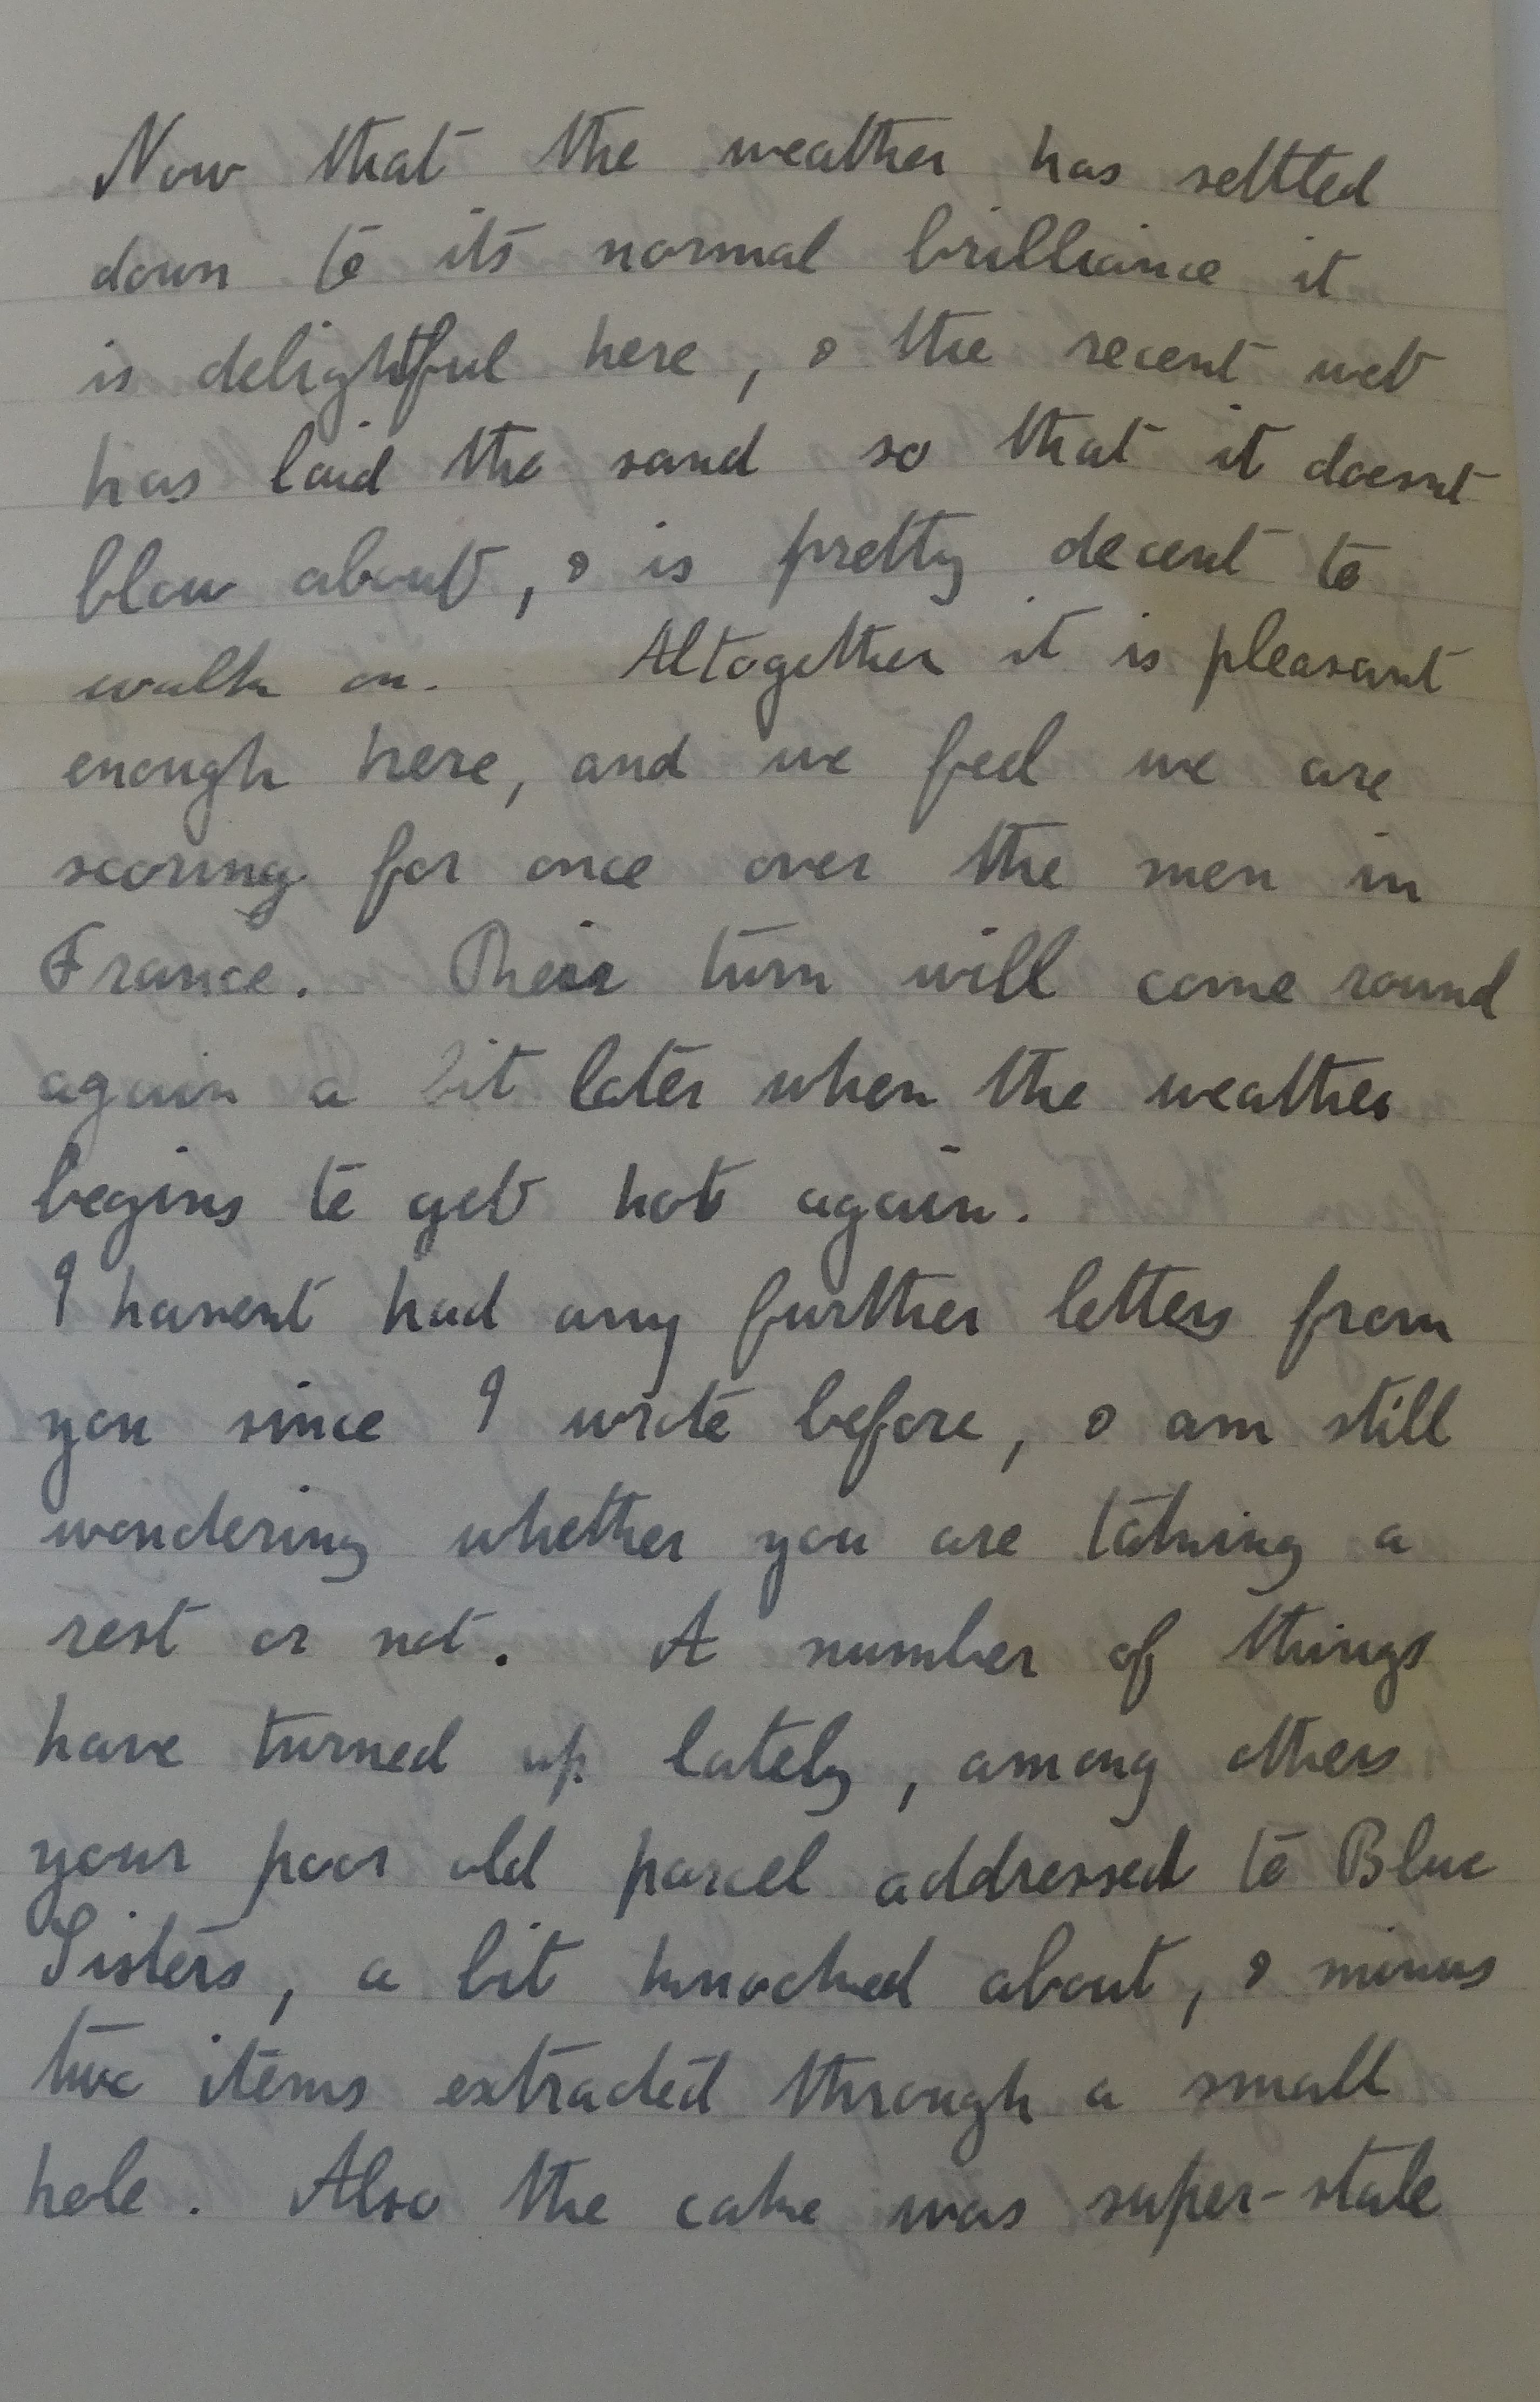 Now that the weather has settled
down to its normal brilliance it
is delightful here, & the recent wet
has laid the sand so that it doesnt
blow about, & is pretty decent to
walk on. Altogether it is pleasant
enough here, and we feel we are
scoring for once over the men in
France. Their turn will come round
again a bit later when the weather
begins to get hot again.
I havent had any further letters from
you since I wrote before, & am still
wondering whether you are taking a
rest or not. A number of things
have turned up lately, among others
your poor old parcel addressed to Blue
Sisters, a bit knocked about, & minus
two items extracted through a small
hole. Also the cake was super-stale